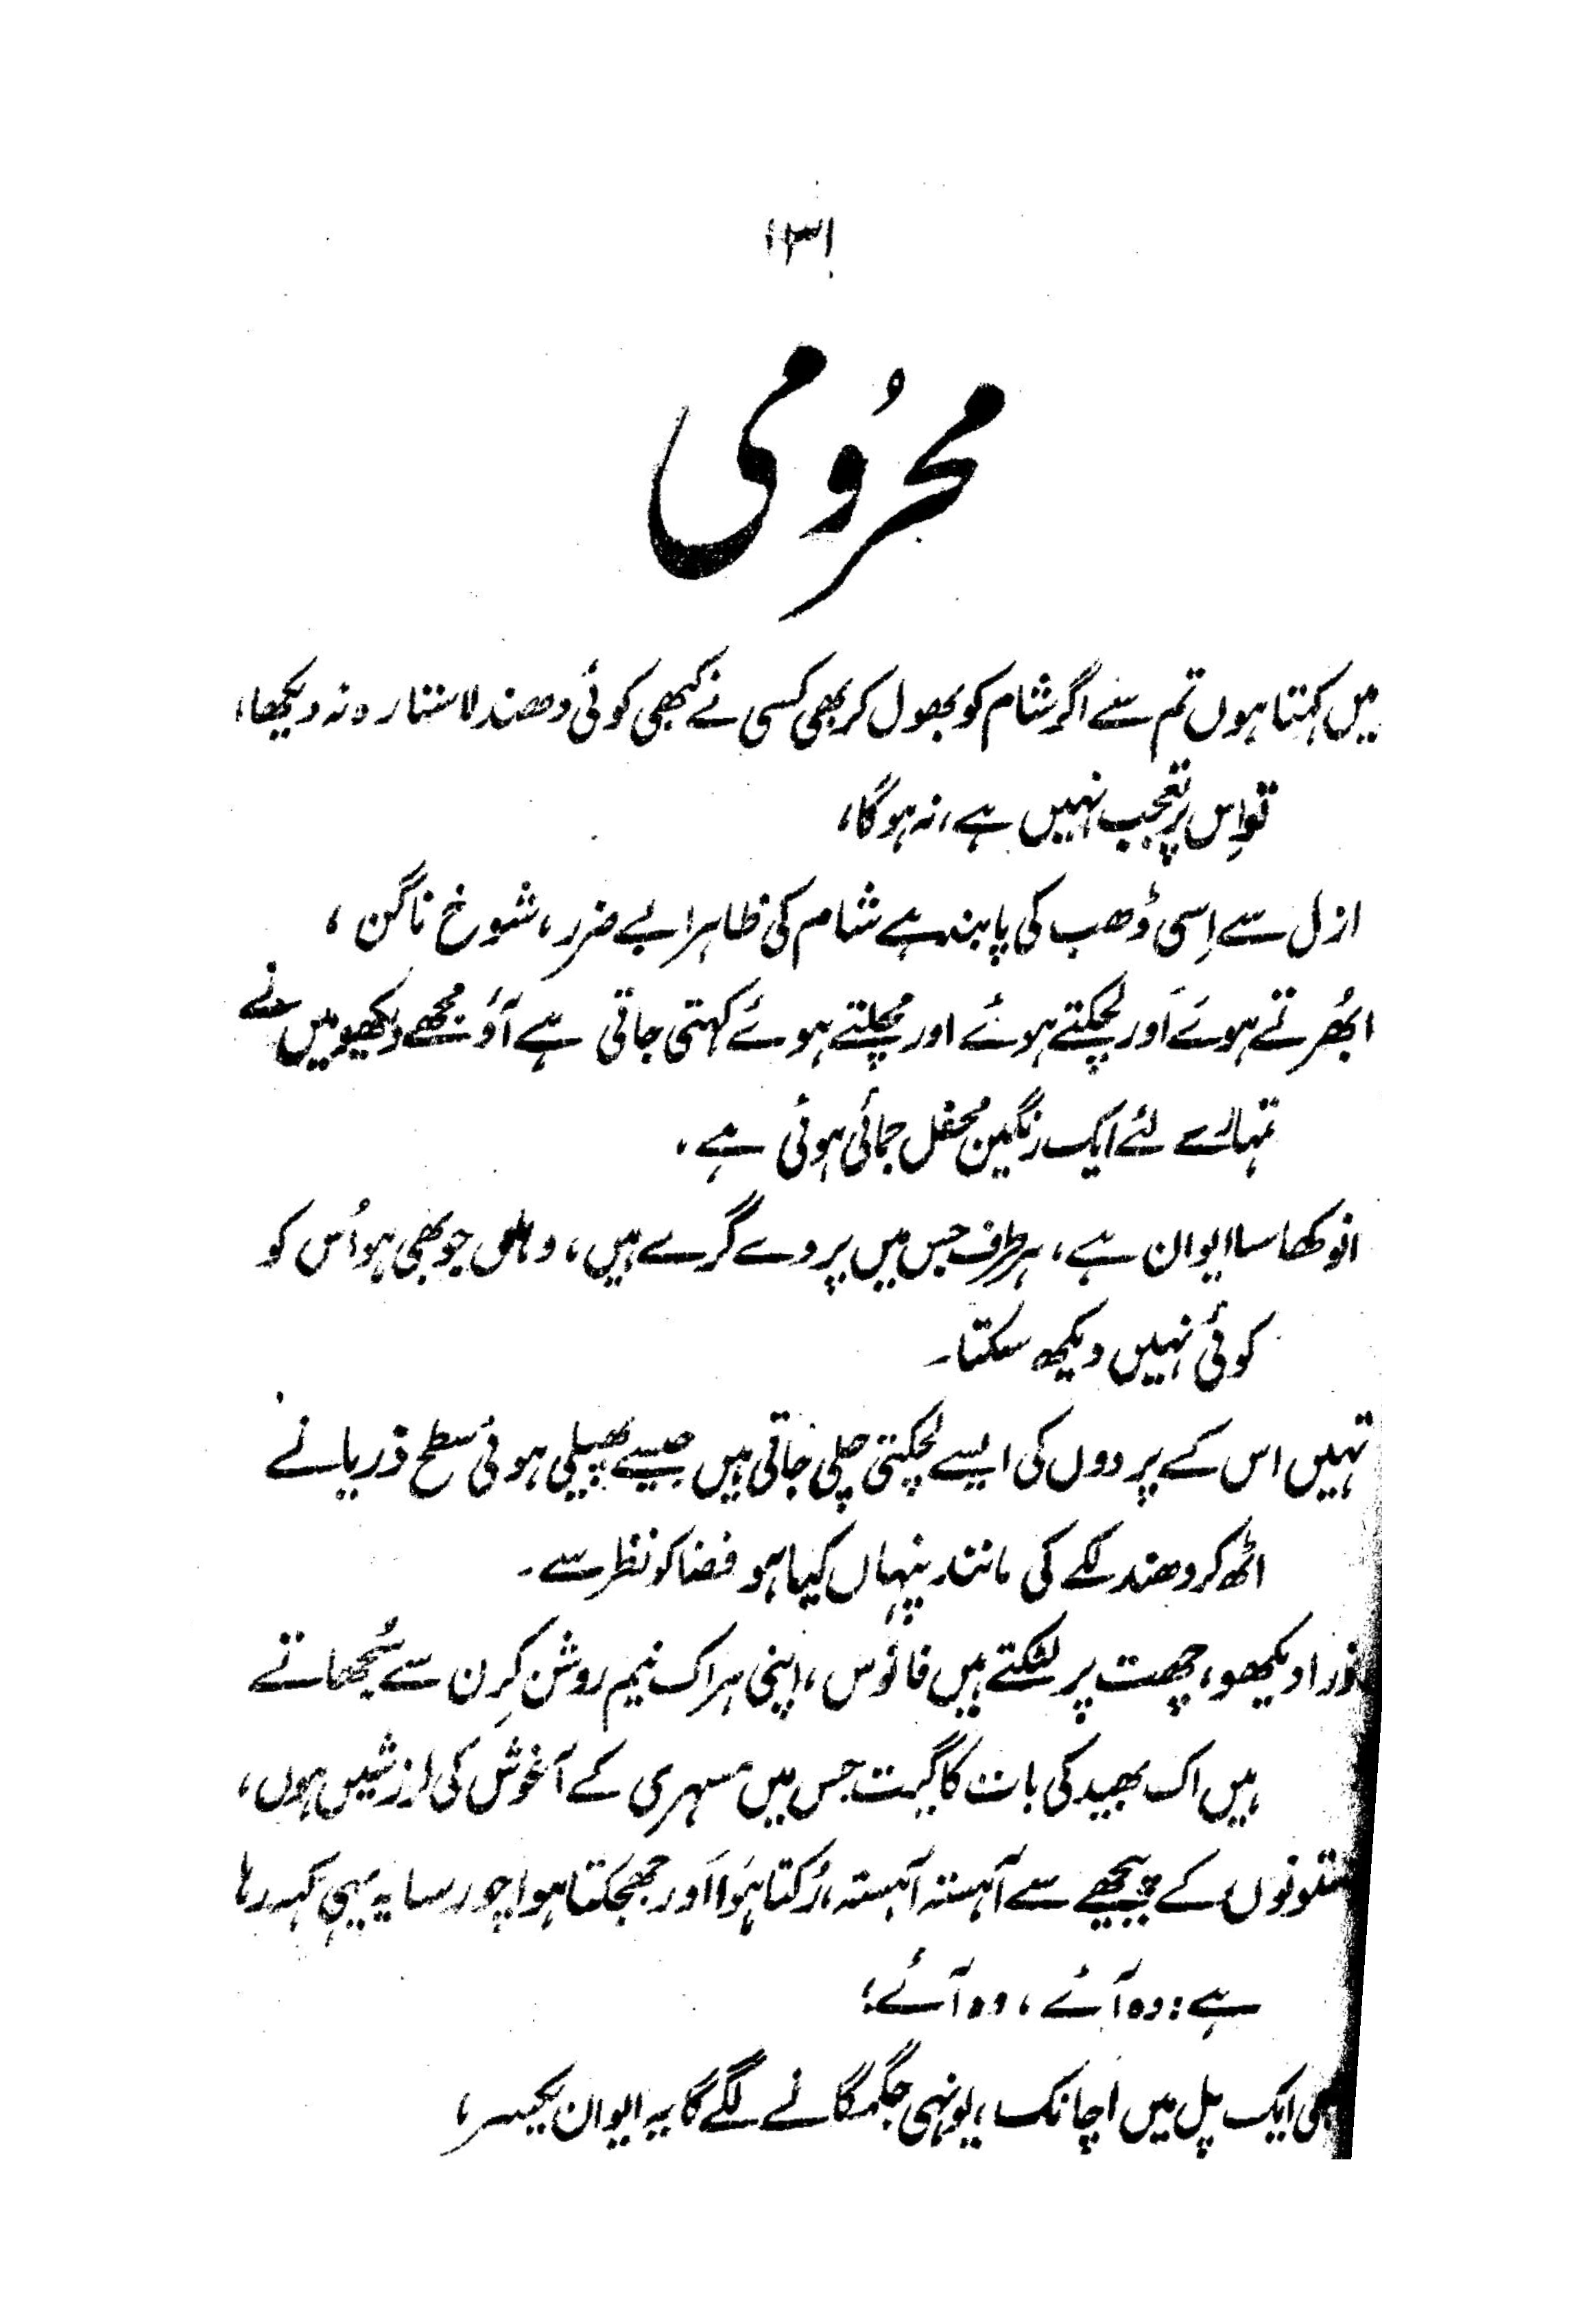 ۱۳۱
محرُومی
میں کہتا ہوں تم سے اگر شام کو بھول کر بھی کسی نے کبھی کوئی دھندلا ستارہ نہ دیکھا،
تو اِس پر تعجب نہیں ہے، نہ ہوگا،
ازل سے اِسی ڈھب کی پابند ہے شام کی ظاہرا بے ضرر، شوخ ناگن،
ابھُرتے ہوئے اَور لچکتے ہوئے اور مچلتے ہوئے کہتی جاتی ہے آؤ مجھے دیکھو میں نے
تمہارے لئے ایک رنگین محفل جمائی ہوئی ہے،
انوکھا سا ایوان ہے، ہر طرف جس میں پردے گرے ہیں، وہاں جو بھی ہو اُس کو
کوئی نہیں دیکھ سکتا۔
تہیں اس کے پردوں کی ایسے لچکتی چلی جاتی ہیں جیسے پھیلی ہوئی سطح دریا نے
اٹھ کر دھندلکے کی مانند پنہاں کیا ہو فضا کو نظر سے۔
ذرا دیکھو، چھت پر لٹکتے ہیں فانوس، اپنی ہر اک نیم روشن کِرن سے سُجھاتے
ہیں اک بھید کی بات کا گیت جس میں مسہری کے آغوش کی لرزشیں ہوں،
ستونوں کے پیچھے سے آہستہ آہستہ، رُکتا ہوا اَور جھجکتا ہوا چور سایہ یہی کہہ رہا
ہے: وہ آئے، وہ آئے؛
ایک پل میں اچانک، یونہی جگمگانے لگے گا یہ ایوان یکسر،